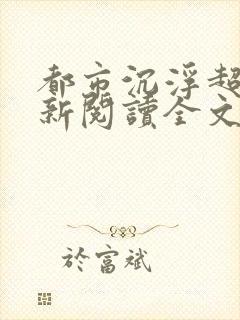 都市沉浮超
新閱讀全文
於富斌